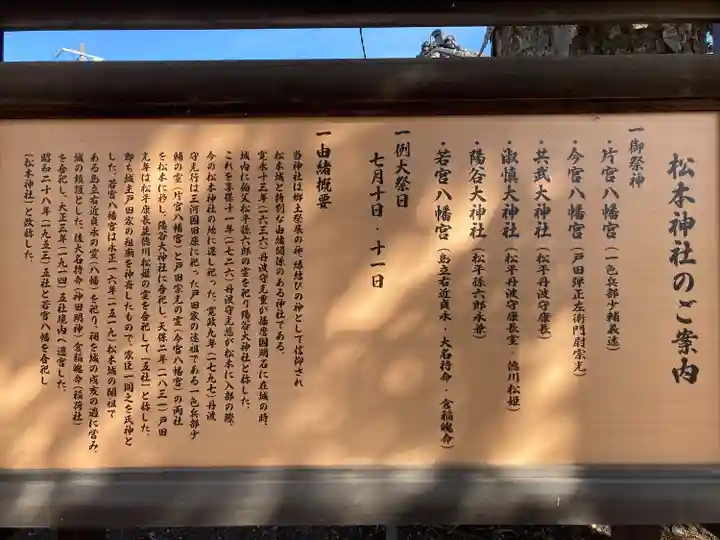 松本神社のご案内
一御祭神
・片宮八幡宮(一色兵部少輔義遠)
・今宮八幡宮(戸田弾正左衛門尉宗光)
・共武大神社(松平丹波守康長)
・淑慎大神社(松平丹波守康長室・徳川松姫)
・陽谷大神社(松平孫六郎永兼)
・若宮八幡宮(島立右近貞永・大名持命・倉稲魂命)
一例大祭日
七月十日・十一日
一由緒概要
当神社は郷土発展の神、縁結びの神として信仰され
松本城と特別な由緒関係のある神社である。
寛永十三年(一六三六)丹波守光重が播磨国明石に在城の時、
城内に伯父松平孫六郎の霊を祀り陽谷大神社と称した。
これを享保十一年(一七二六)丹波守光慈が松本に入部の際、
今の松本神社の地に遷し祀った。寛政九年(一七九七)丹波
守光行は三河国田原に祀った戸田家の遠祖である一色兵部少
輔の霊(片宮八幡宮)と戸田宗光の霊(今宮八幡宮)の両社
を松本に移し、陽谷大神社に合祀し、天保二年(一八三一)戸田
光年は松平康長並徳川松姫の霊を合祀して「五社」と称した。
即ち城主戸田家の祖廟を神斎したもので、家臣一同之を氏神と
した。若宮八幡宮は永正一六年(一五一九)松本城の開祖で
ある島立右近貞永の霊(八幡)を祀り、祠を城の戌亥の遇に営み、
城の鎮護とした。後大名持命(神田明神)倉稲魂命(稲荷社)
を合祀し、大正三年(一九一四)五社境内へ遷宮した。
昭和二十八年(一九五三)五社と若宮八幡を合祀し
「松本神社」と改称した。